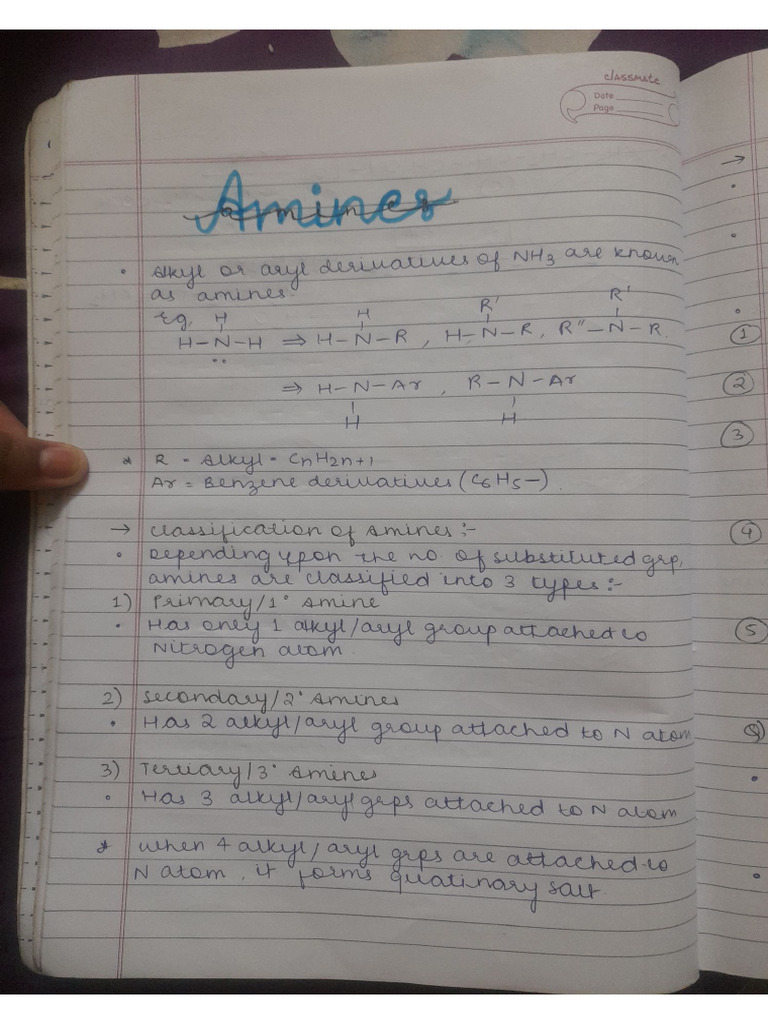 classmate
Date
Page
Amines
• Alkyl or aryl derivatives of NH3 are known
as amines.
Eg. H H R' R'
H-N-H ⇒ H-N-R , H-N-R, R"-N-R.
⇒ H-N-Ar , R-N-Ar
H H
* R = Alkyl = CnH2n+1
Ar = Benzene derivatives (C6H5-).
→ Classification of Amines :-
• Depending upon the no. of substituted grp,
amines are classified into 3 types :-
1) Primary/1° Amine
• Has only 1 alkyl/aryl group attached to
Nitrogen atom.
2) Secondary/2° Amines
• Has 2 alkyl/aryl group attached to N atom
3) Tertiary/3° Amines
• Has 3 alkyl/aryl grps attached to N atom
* When 4 alkyl/aryl grps are attached to
N atom, it forms quatinary salt.
→
1
2
3
4
5
Q)